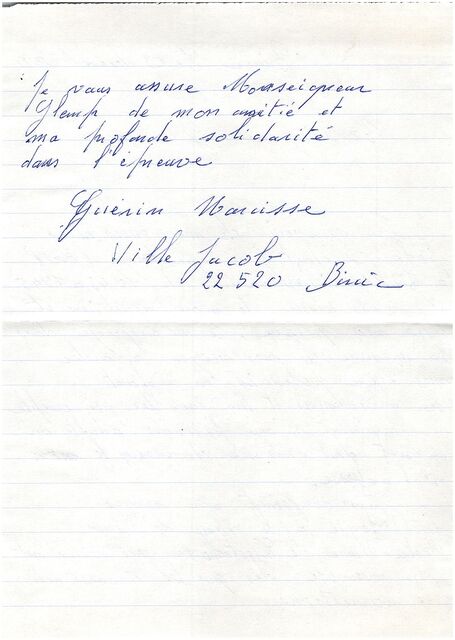 Je vous assure Monseigneur
Glemp de mon amitié et
ma profonde solidarité
dans l'épreuve
Guérin Narcisse
Ville Jacob
22 520 Binic